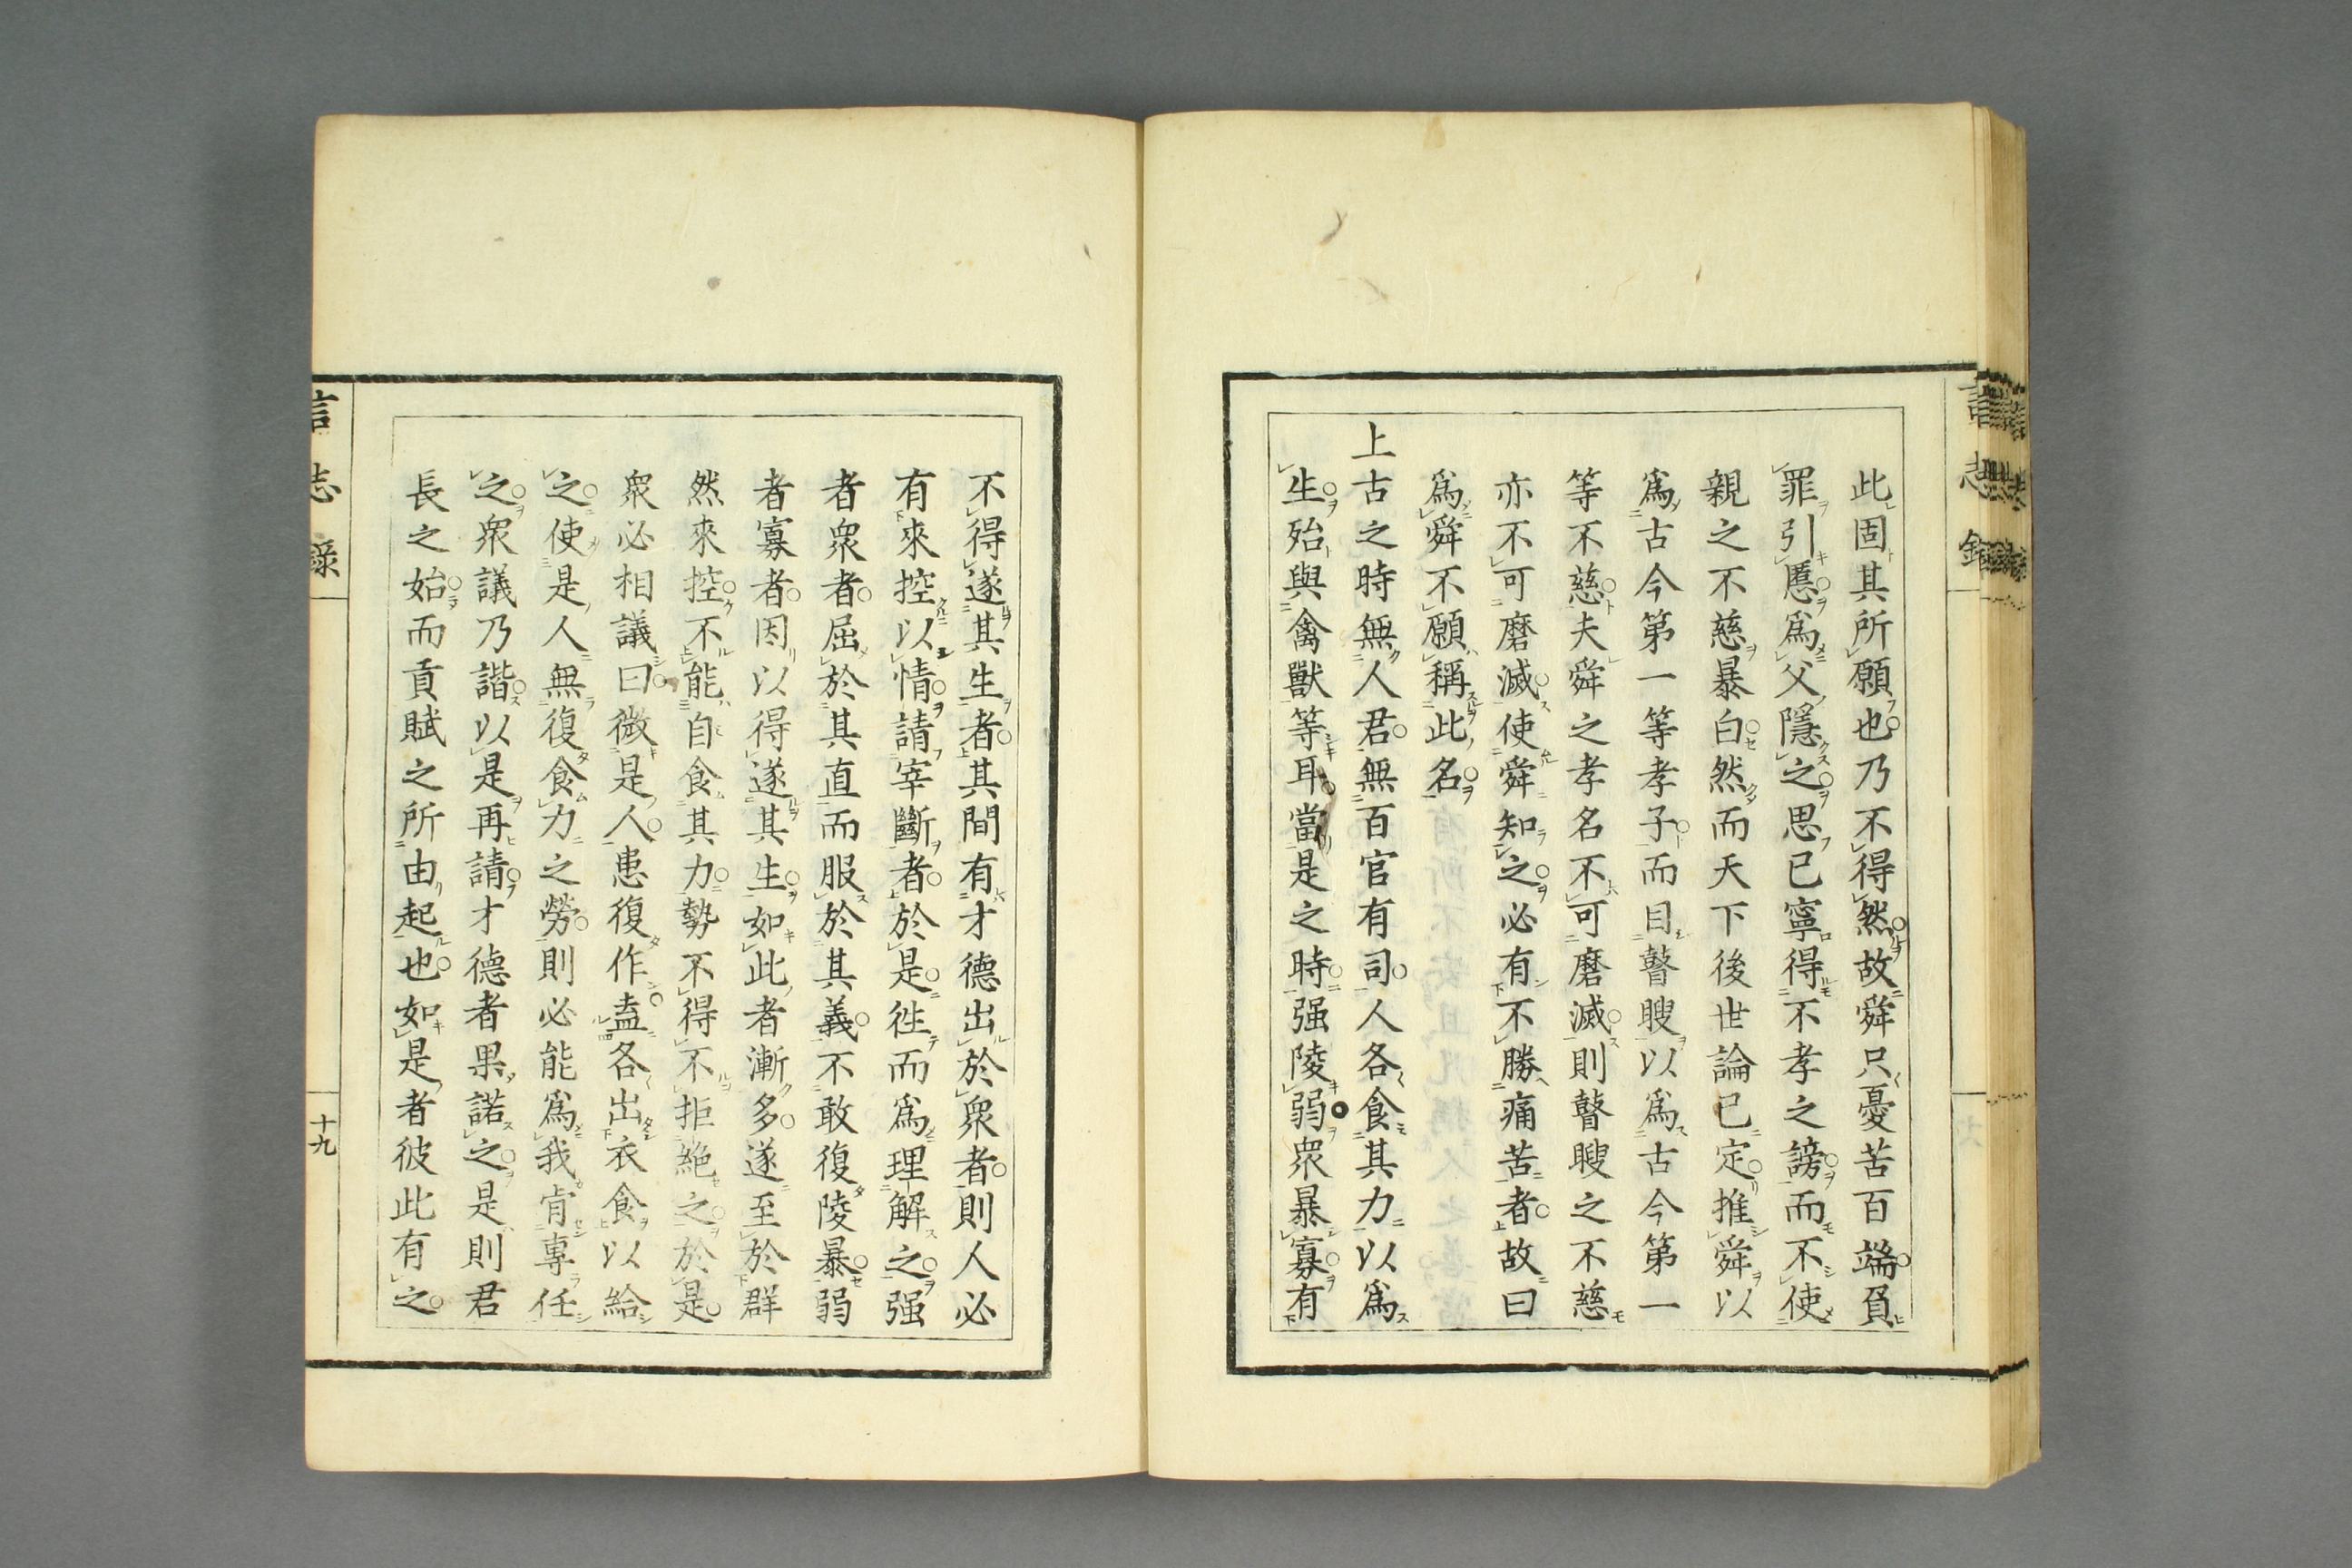 此固其所願也乃不得然故舜只憂苦百端負
罪引慝爲父隱之思已寧得不孝之謗而不使
親之不慈暴白然而天下後世論已定推舜以
爲古今第一等孝子而目瞽瞍以爲古今第一
等不慈夫舜之孝名不可磨滅則瞽瞍之不慈
亦不可磨滅使舜知之必有不勝痛苦者故曰
爲舜不願稱此名
上古之時無人君無百官有司人各食其力以爲
生殆與禽獸等耳當是之時强陵弱衆暴寡有
不得遂其生者其間有才德出於衆者則人必
有來控以情請宰斷者於是往而爲理解之强
者衆者屈於其直而服於其義不敢復陵暴弱
者寡者因以得遂其生如此者漸多遂至於群
然來控不能自食其力勢不得不拒絶之於是
衆必相議曰微是人患復作盍各出衣食以給
之使是人無復食力之勞則必能爲我肯專任
之衆議乃諧以是再請才德者果諾之是則君
長之始而貢賦之所由起也如是者彼此有之
言志錄
十九